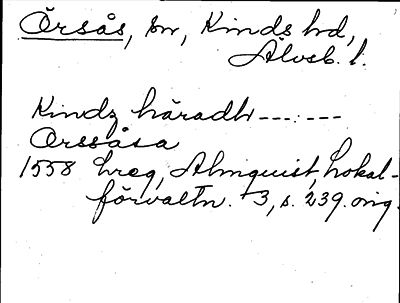 Örsås, sn, Kinds hd,
Älvsb. l.
Kindz häradh ---.---
Orssåsa
1558 hreg, Almquist, Lokal-
förvaltn. 3, s. 239. orig.